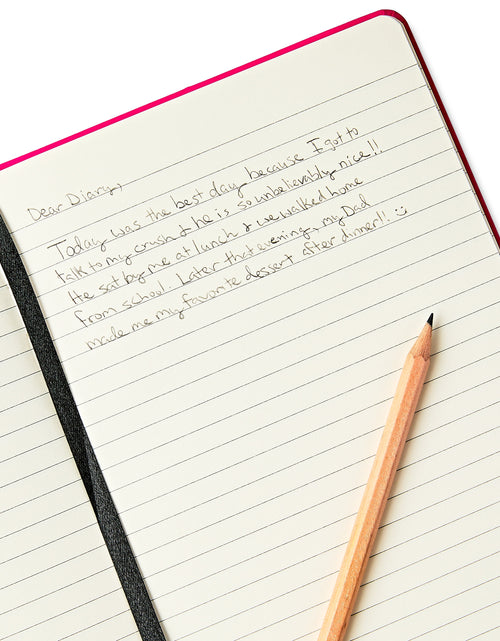 Dear Diary,
Today was the best day because I got to
talk to my crush & he is so unbelievably nice!!
He sat by me at lunch & we walked home
from school. Later that evening, my Dad
made me my favorite dessert after dinner!! :)